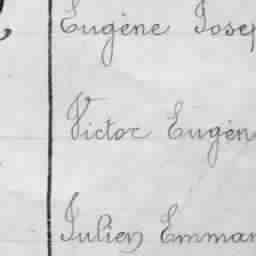 Eugène Josep
Victor Eugèn
Julien Emman